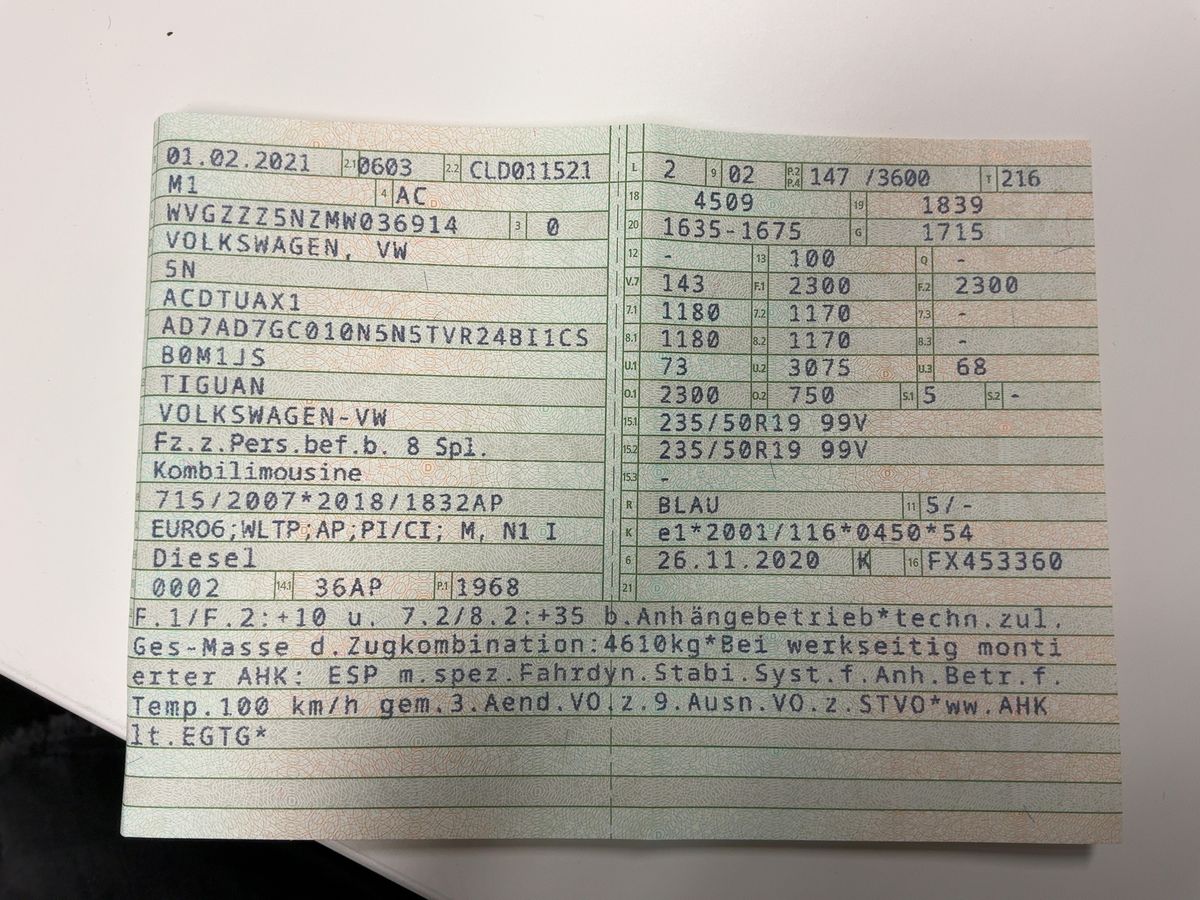 01.02.2021 2.1 0603 2.2 CLD011521
M1 4 AC
WVGZZZ5NZMW036914 3 0
VOLKSWAGEN, VW
5N
ACDTUAX1
AD7AD7GC010N5N5TVR24BI1CS
B0M1JS
TIGUAN
VOLKSWAGEN-VW
Fz.z.Pers.bef.b. 8 Spl.
Kombilimousine
715/2007*2018/1832AP
EURO6;WLTP;AP;PI/CI; M, N1 I
Diesel
0002 14.1 36AP P.1 1968
L 2 9 02 P.2 P.4 147 /3600 T 216
18 4509 19 1839
20 1635-1675 G 1715
12 - 13 100 Q -
V.7 143 F.1 2300 F.2 2300
7.1 1180 7.2 1170 7.3 -
8.1 1180 8.2 1170 8.3 -
U.1 73 U.2 3075 U.3 68
O.1 2300 O.2 750 S.1 5 S.2 -
15.1 235/50R19 99V
15.2 235/50R19 99V
15.3 -
R BLAU 11 5/-
K e1*2001/116*0450*54
6 26.11.2020 K 16 FX453360
21
F.1/F.2:+10 u. 7.2/8.2:+35 b.Anhängebetrieb*techn.zul.
Ges-Masse d.Zugkombination:4610kg*Bei werkseitig monti
erter AHK: ESP m.spez.Fahrdyn.Stabi.Syst.f.Anh.Betr.f.
Temp.100 km/h gem.3.Aend.VO.z.9.Ausn.VO.z.STVO*ww.AHK
lt.EGTG*